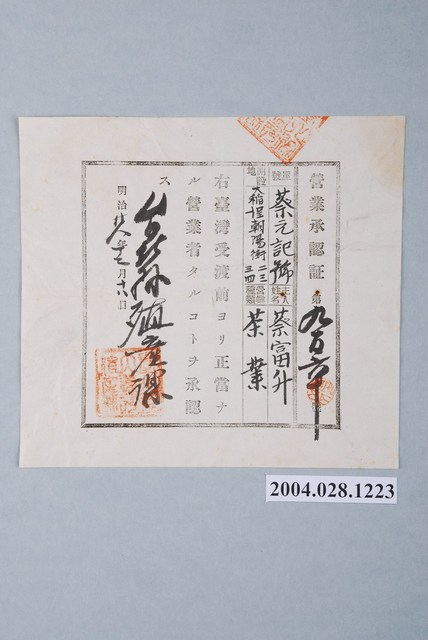 營業承認証 第九百六
屋號 蔡元記號 主人姓名 蔡富升
開設地 大稻埕朝陽街二三三四 營業種類 茶業
右臺灣受渡前ヨリ正當ナ
ル營業者タルコトヲ承認
ス
明治廿八年十二月十八日
殖產課
2004.028.1223